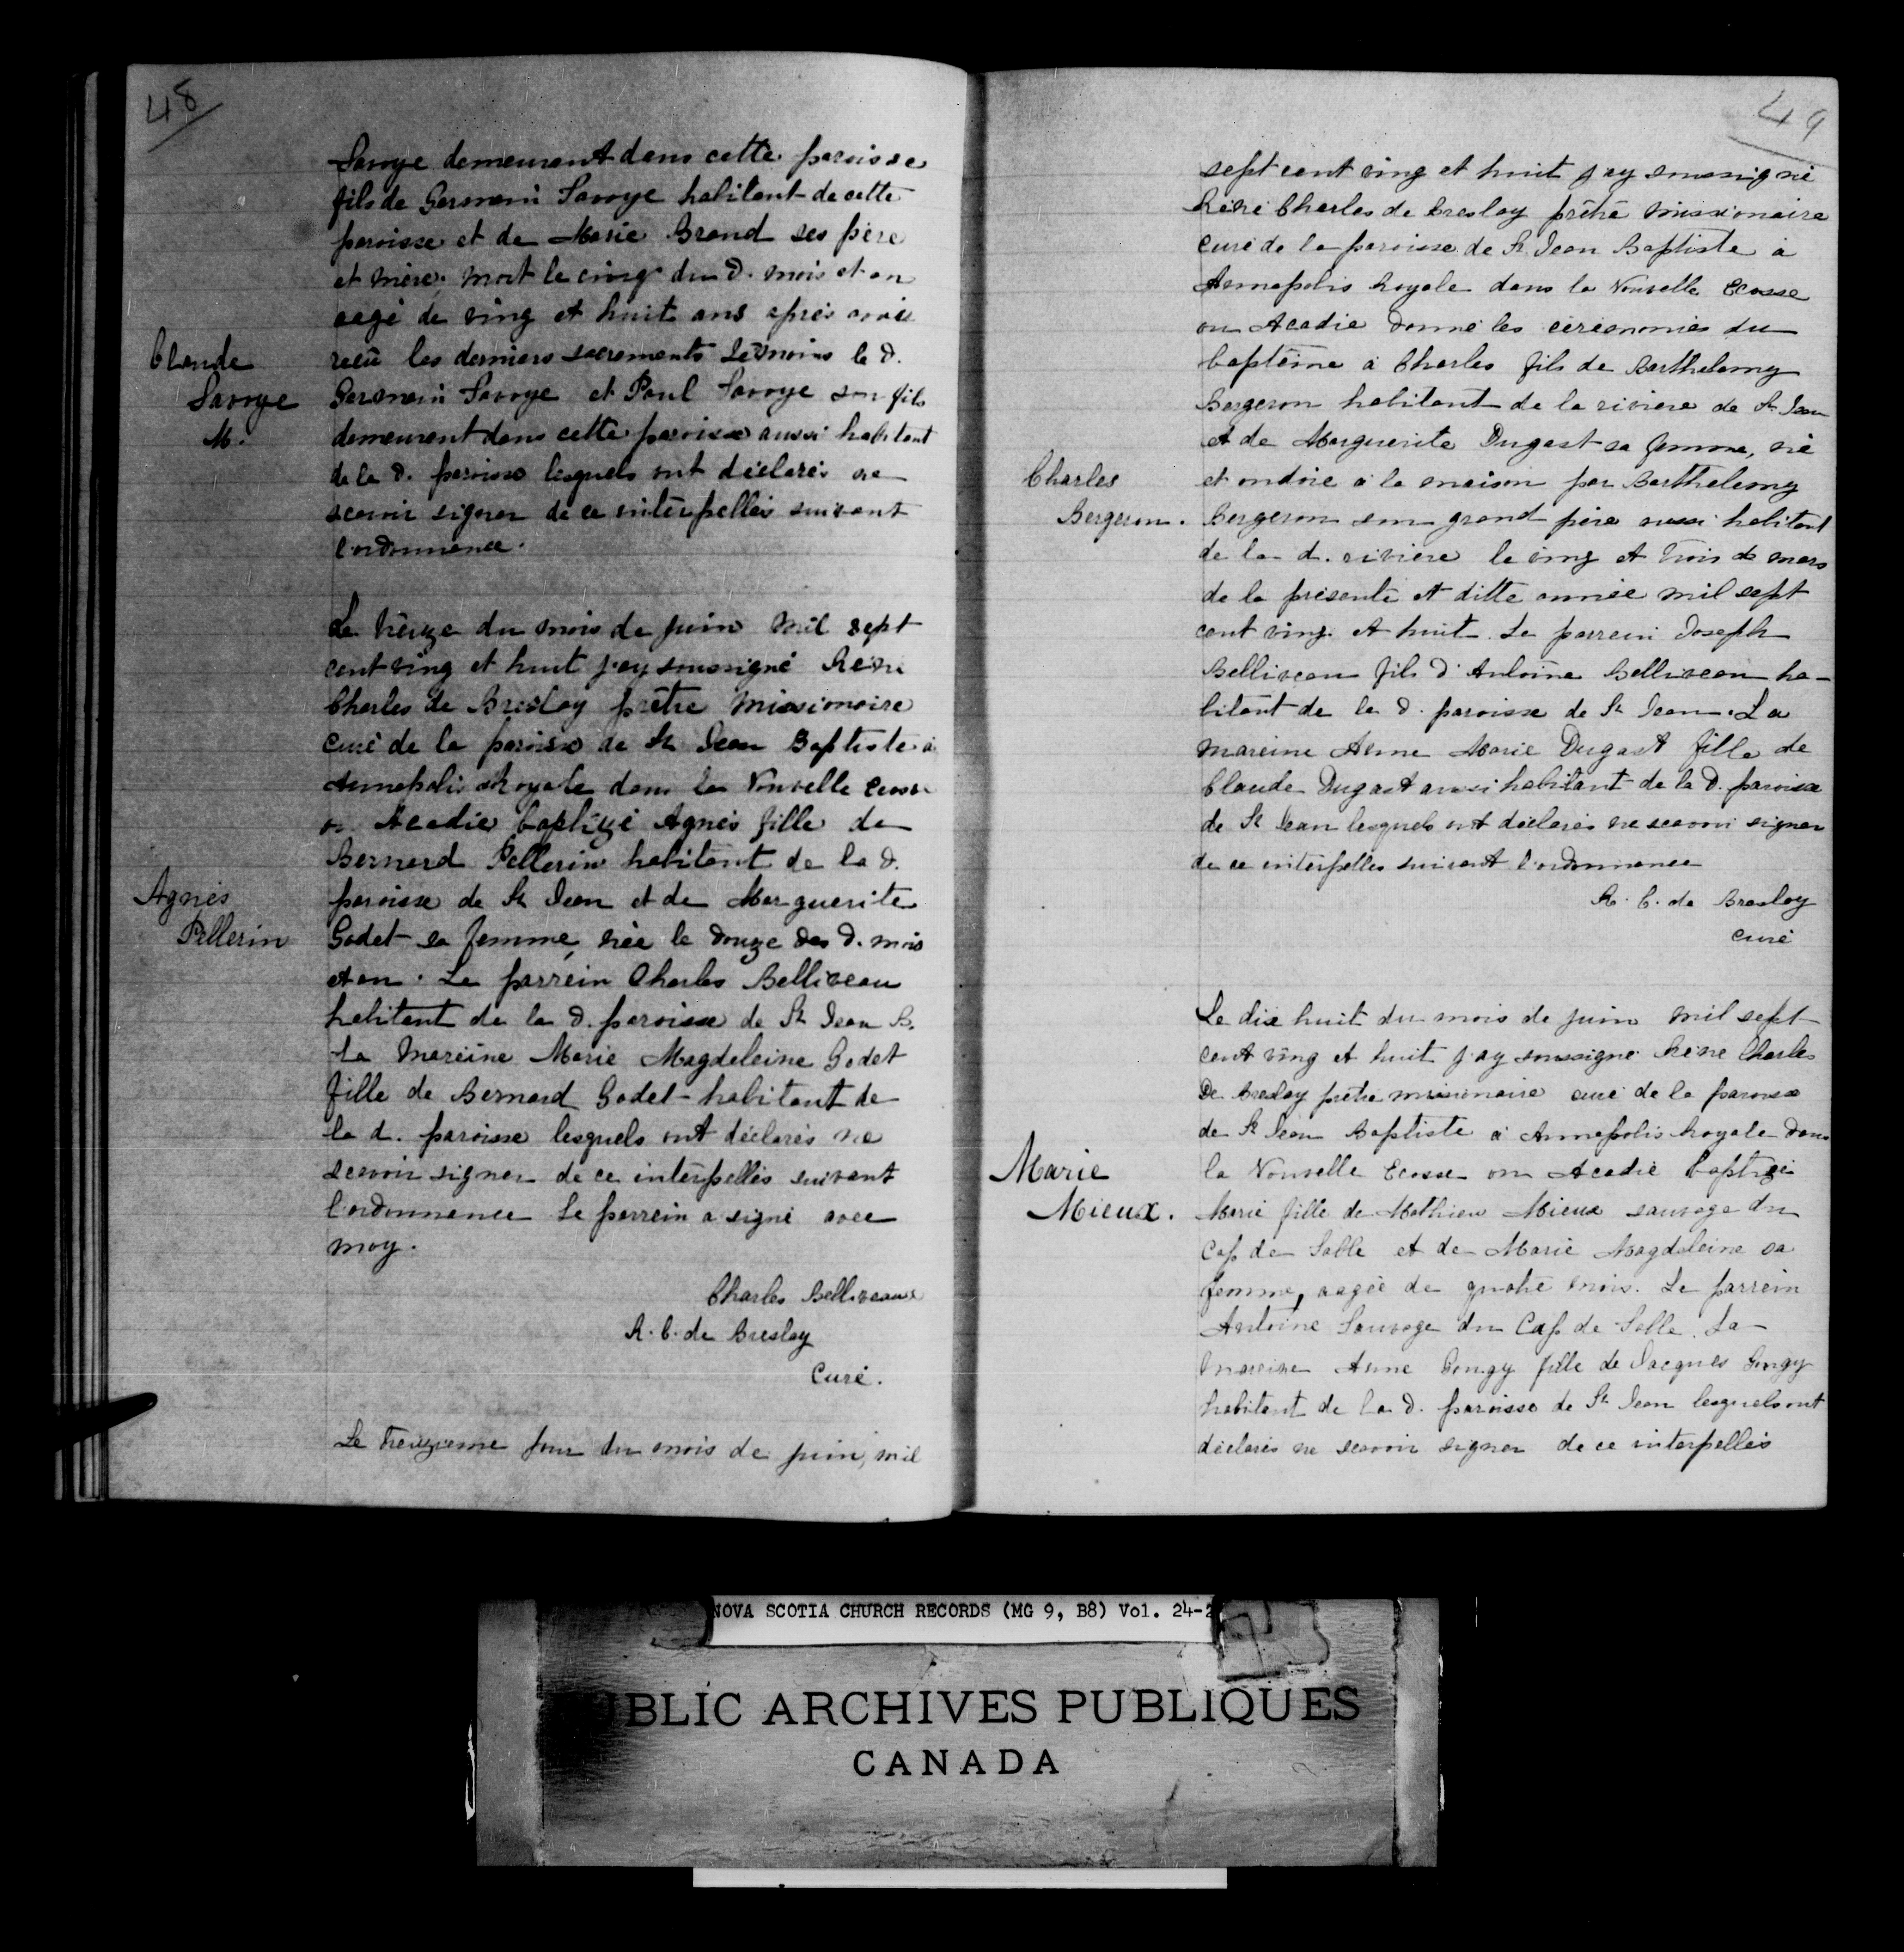 48
Savoye demeurant dans cette paroisse
fils de Germain Savoye habitant de cette
paroisse et de Marie Brand ses père
et mère. mort le cinq du d. mois et an
aagé de ving et huit ans après avoir
Claude
Savoye
M.
recû les derniers sacrements Témoins le d.
Germain Savoye et Paul Savoye son fils
demeurant dans cette paroisse aussi habitant
de la d. paroisse lesquels ont déclarés ne
scavoir signer de ce interpellés suivant
l'ordonnance.
Le treize du mois de juin mil sept
cent ving et huit j'ay soussigné René
Charles de Breslay prêtre missionaire
curé de la paroisse de St Jean Baptiste à
Annapolis Royale dans la Nouvelle Ecosse
ou Acadie baptizé Agnés fille de
Bernard Pellerin habitant de la d.
Agnés
Pellerin
paroisse de St Jean et de Marguerite
Godet sa femme, née le douze des d. mois
et an. Le parrein Charles Belliveau
habitant de la d. paroisse de St Jean B.
La Mareine Marie Magdeleine Godet
fille de Bernard Godet habitant de
la d. paroisse lesquels ont déclarés ne
scavoir signer de ce interpellés suivant
l'ordonnance Le parrein a signé avec
moy.
Charles Belliveaux
R. C. de Breslay
Curé.
Le treizieme jour du mois de juin, mil
49
sept cent ving et huit j'ay soussigné
René Charles de Breslay prêtre missionaire
curé de la paroisse de St Jean Baptiste à
Annapolis Royale dans la Nouvelle Ecosse
ou Acadie donné les cérémonies du
baptême à Charles fils de Barthelemy
Bergeron habitant de la riviere de St Jean
et de Marguerite Dugast sa femme, né
Charles
Bergeron.
et ondoié à la maison par Barthelemy
Bergeron son grand père aussi habitant
de la d. rivière le ving et trois de mars
de la présente et ditte année mil sept
cent ving et huit. Le parrein Joseph
Belliveau fils d'Antoine Belliveau ha-
bitant de la d. paroisse de St Jean. La
mareine Anne Marie Dugast fille de
Claude Dugast aussi habitant de la d. paroisse
de St Jean lesquels ont déclarés ne scavoir signer
de ce interpellés suivant l'ordonnance
R. C. de Breslay
curé
Le dix huit du mois de juin mil sept
cent ving et huit j'ay soussigné René Charles
De Breslay prêtre missionaire curé de la paroisse
de St Jean Baptiste à Annapolis Royale dans
Marie
Mieux.
la Nouvelle Ecosse ou Acadie baptizé
Marie fille de Mathieu Mieux sauvage du
Cap de Sable et de Marie Magdeleine sa
femme, aagée de quatre mois. Le parrein
Antoine Sauvage du Cap de Sable. La
mareine Anne fille de Jacques
habitant de la d. paroisse de St Jean lesquels ont
déclarés ne scavoir signer de ce interpellés
NOVA SCOTIA CHURCH RECORDS (MG 9, B8) Vol. 24-2
PUBLIC ARCHIVES PUBLIQUES
CANADA